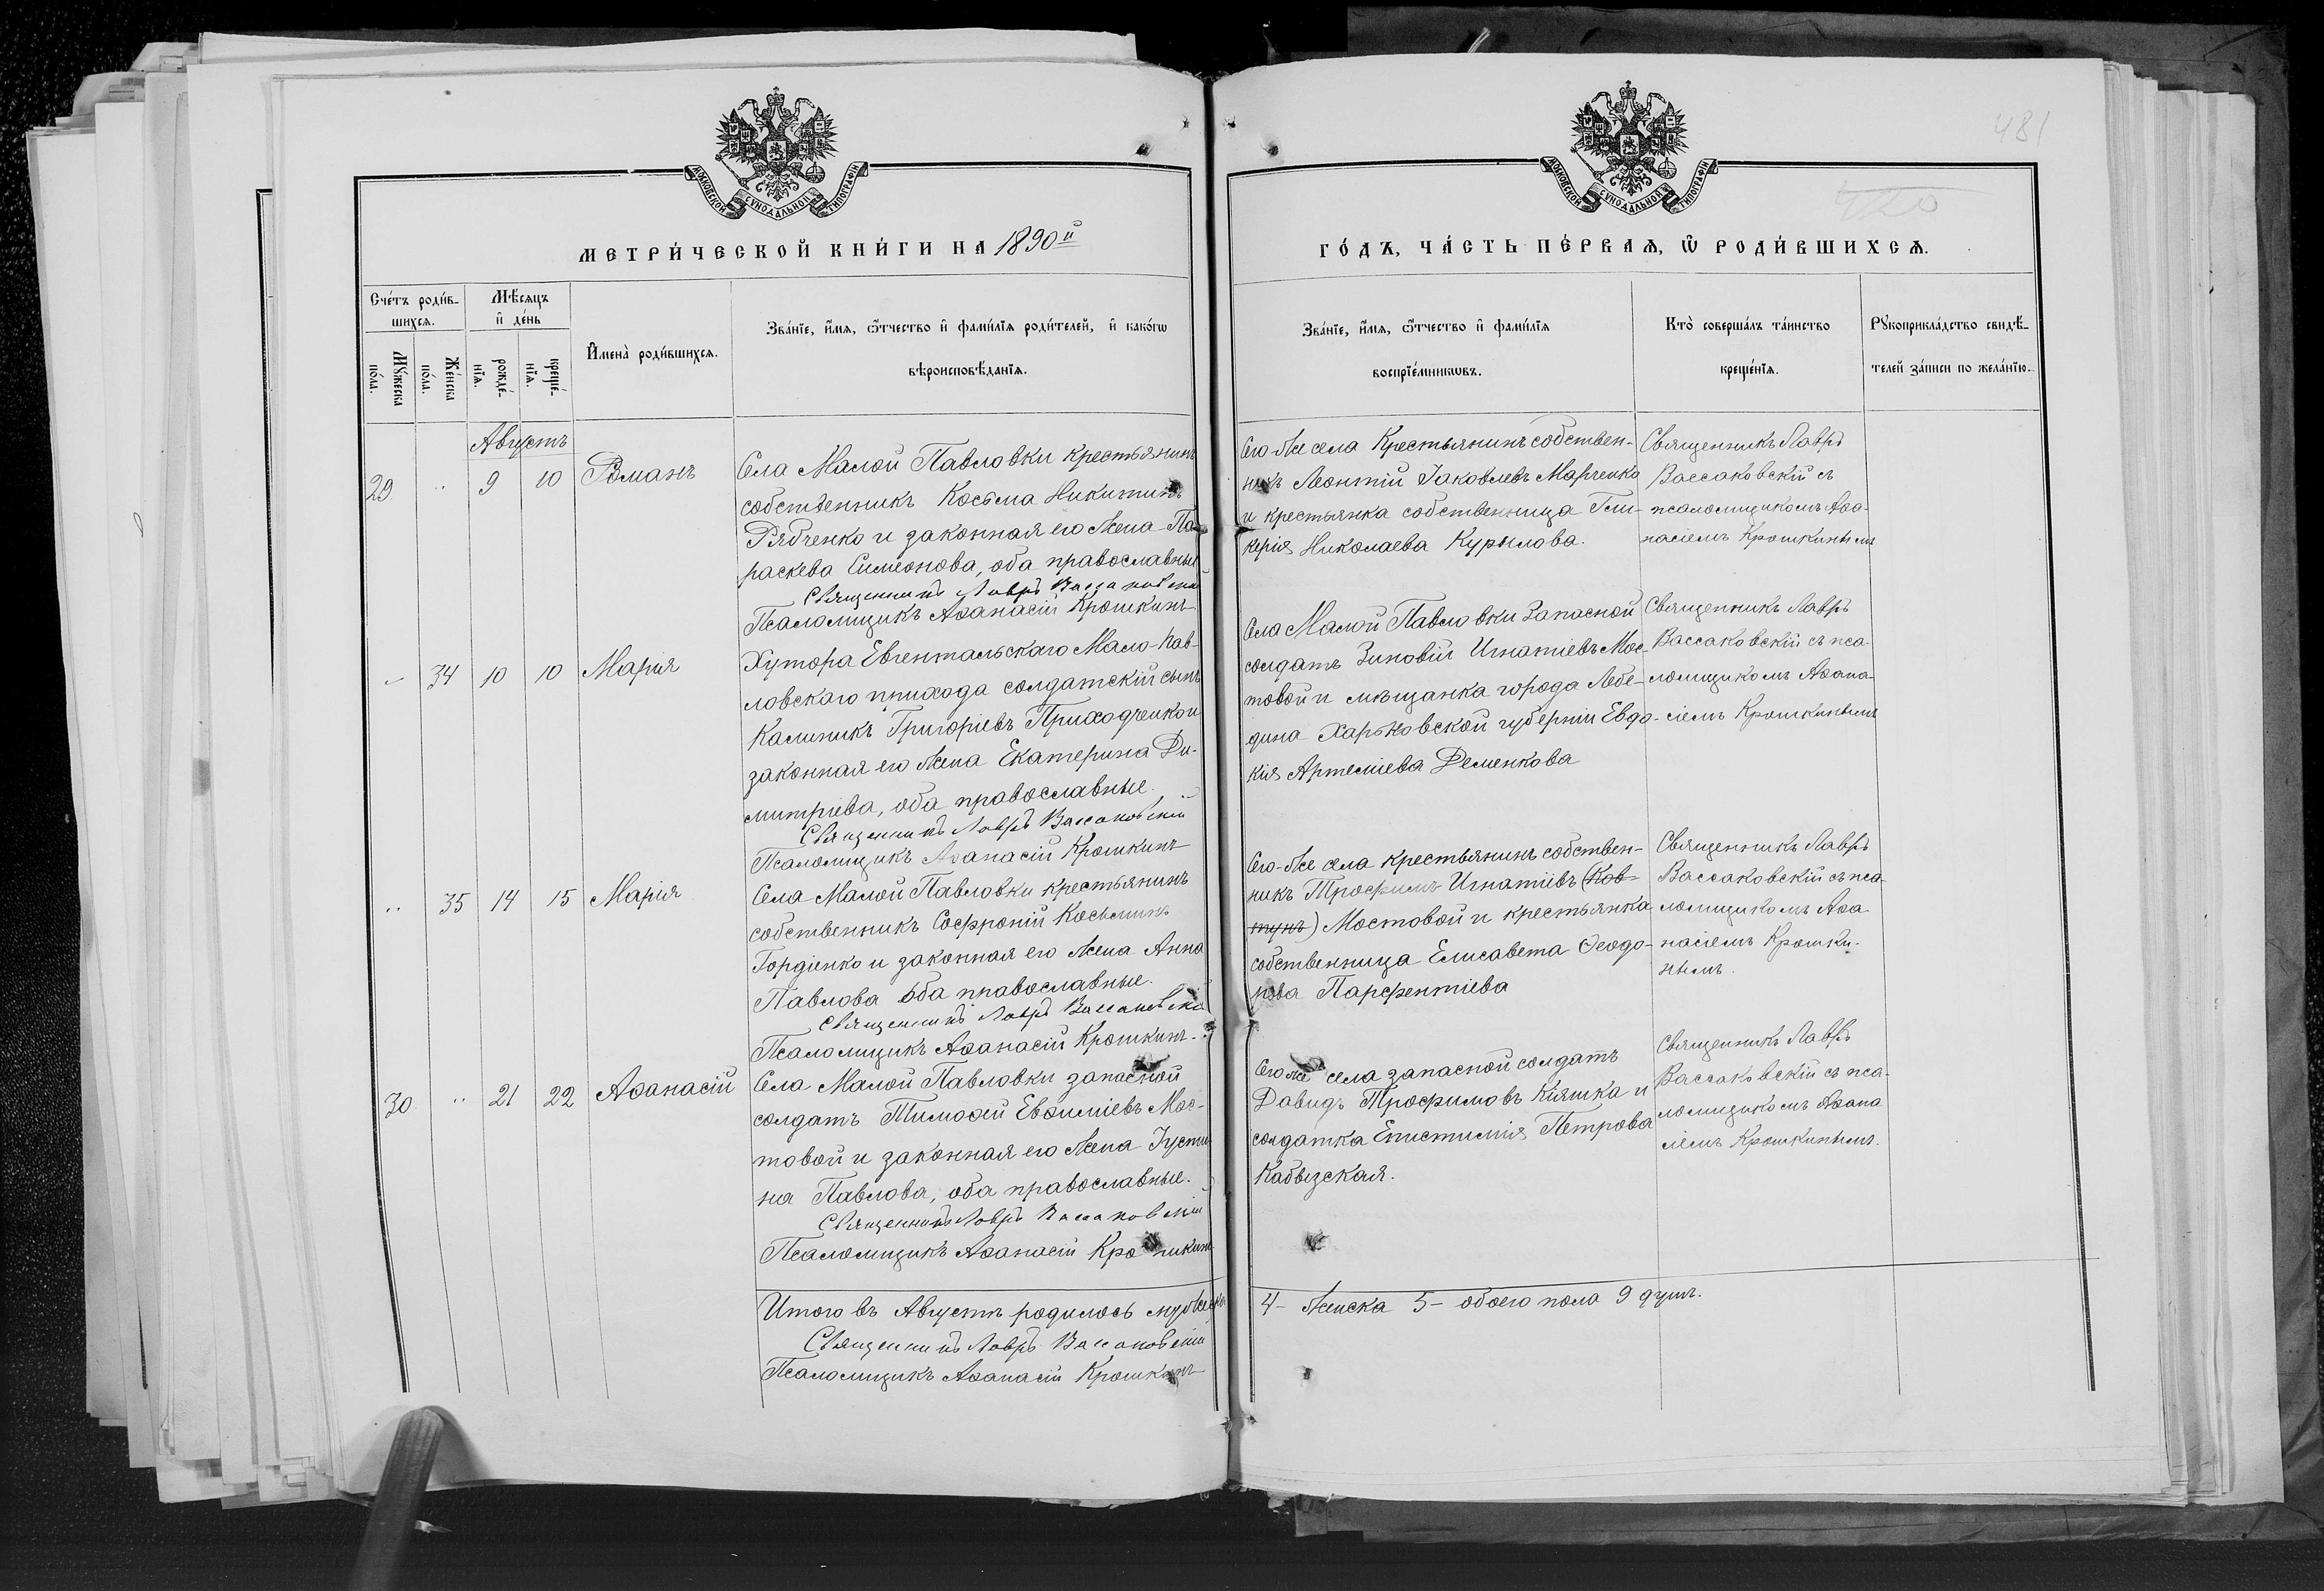 481
420
МОСКОВСКОЙ СУНОДАЛЬНОЙ ТИПОГРАФІИ
МЕТРИ́ЧЕСКОЙ КНИ́ГИ НА 1890й
Сче́тъ роди́в-
шихсѧ.
Мѣ́сѧцъ
и҆ де́нь
Мꙋ́жеска
по́ла.
Же́нска
по́ла.
рожде́-
нїѧ.
креще́-
нїѧ.
И҆мена̀ роди́вшихсѧ.
Зва́нїе, и҆́мѧ, ѻ҆́тчество и҆ фами́лїѧ роди́телей, и҆ како́гѡ
вѣроисповѣ́данїѧ.
Августъ
29 " 9 10 Романъ
Села Малой Павловки крестьянинъ
собственникъ Косьма Никитинъ
Рябченко и законная его жена Па-
раскева Симеонова, оба православные
Священникъ Лавръ Вассаковскій
Псаломщикъ Аѳанасій Крошкинъ
" 34 10 10 Марія
Хутора Евгентальскаго Мало-Пав-
ловскаго прихода солдатскій сынъ
Калиникъ Григоріевъ Приходченко и
законная его жена Екатерина Ди-
митріева, оба православные.
Священникъ Лавръ Вассаковскій
Псаломщикъ Аѳанасій Крошкинъ
" 35 14 15 Марія
Села Малой Павловки крестьянинъ
собственникъ Софроній Косьминъ
Гордіенко и законная его жена Анна
Павлова оба православные.
Священникъ Лавръ Вассаковскій
Псаломщикъ Аѳанасій Крошкинъ
30 " 21 22 Аѳанасій
Села Малой Павловки запасной
солдатъ Тимоѳей Евѳиміевъ Мос-
товой и законная его жена Іусти
на Павлова, оба православные.
Священникъ Лавръ Вассаковскій
Псаломщикъ Аѳанасій Крошкинъ
Итого въ Августѣ родилось мужеска
Священникъ Лавръ Вассаковскій
Псаломщикъ Аѳанасій Крошкинъ
МОСКОВСКОЙ СУНОДАЛЬНОЙ ТИПОГРАФІИ
ГО́ДЪ, ЧА́СТЬ ПЕ́РВАѦ, Ѡ҆ РОДИ́ВШИХСѦ.
Зва́нїе, и҆́мѧ, ѻ҆́тчество и҆ фами́лїѧ
воспрїе́мникѡвъ.
Кто̀ соверша́лъ та́инство
креще́нїѧ.
Рꙋкоприкла́дство свидѣ́-
телей за́писи по жела́нїю.
Сего-же села Крестьянинъ собствен-
никъ Леонтій Іаковлевъ Марченко
и крестьянка собственница Гли-
керія Николаева Курылова.
Священникъ Лавръ
Вассаковскій съ
псаломщикомъ Аѳа-
насіемъ Крошкинымъ
Села Малой Павловки Запасной
солдатъ Зиновій Игнатіевъ Мос-
товой и мѣщанка города Лебе-
дина Харьковской губерніи Евдо-
кія Артеміева Деменкова
Священникъ Лавръ
Вассаковскій съ пса-
ломщикомъ Аѳана-
сіемъ Крошкинымъ
Сего-же села крестьянинъ собствен-
никъ Трофимъ Игнатіевъ (Ков-
тунъ) Мостовой и крестьянка
собственница Елисавета Ѳеодо-
рова Парфентіева
Священникъ Лавръ
Вассаковскій съ пса-
ломщикомъ Аѳа
насіемъ Крошки-
нымъ.
Сего же села запасной солдатъ
Давидъ Трофимовъ Кіяшка и
солдатка Епистимія Петрова
Кабызская.
Священникъ Лавръ
Вассаковскій съ пса-
ломщикомъ Аѳана
сіемъ Крошкинымъ.
4- женска 5- обоего пола 9 душъ.